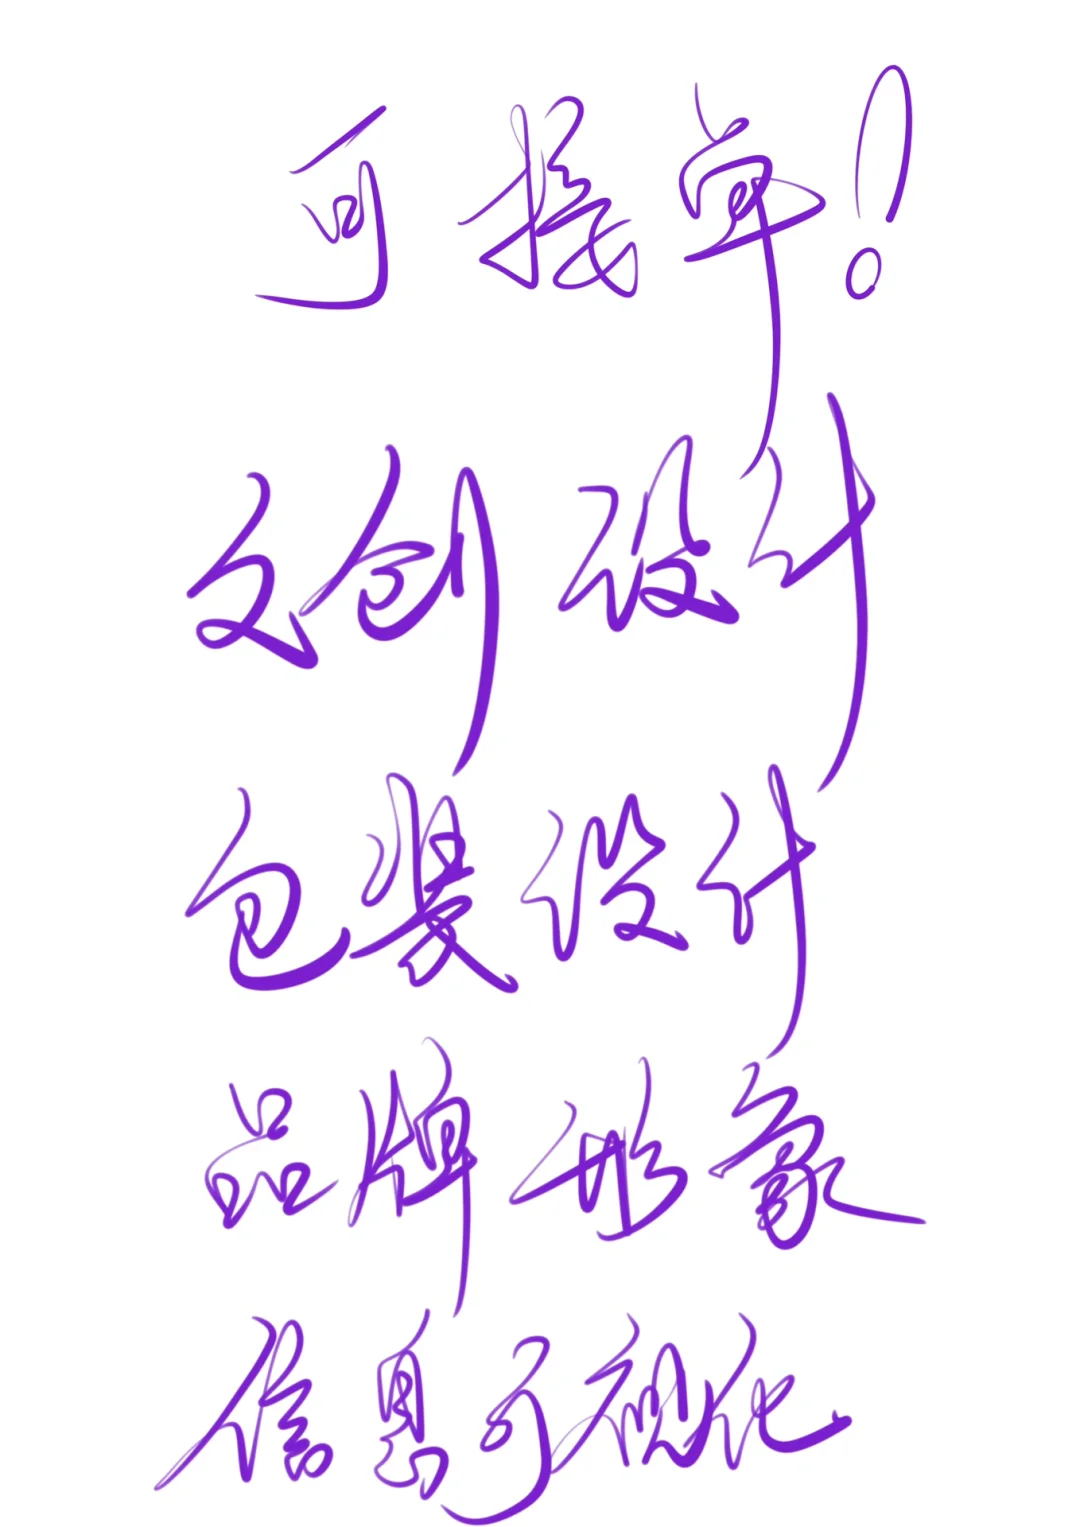 可接单!
文创设计
包装设计
品牌形象
信息可视化